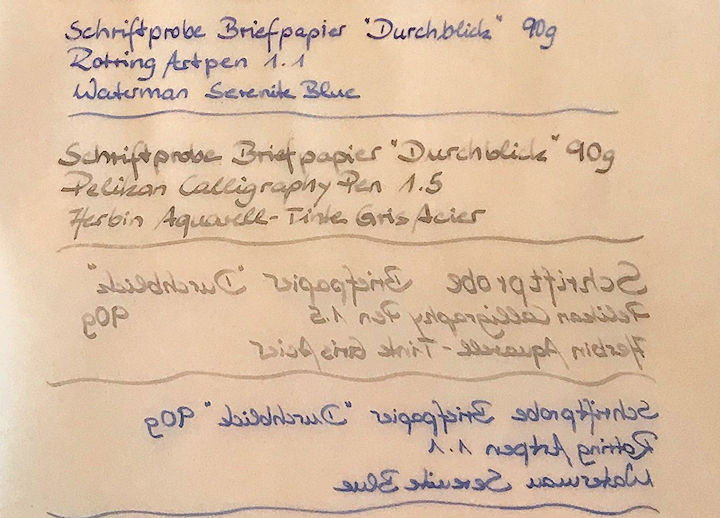 Schriftprobe Briefpapier "Durchblick" 90g
Rotring Artpen 1.1
Waterman Serenite Blue
Schriftprobe Briefpapier "Durchblick" 90g
Pelikan Calligraphy Pen 1.5
Herbin Aquarell-Tinte Gris Acier
Schriftprobe Briefpapier "Durchblick"
Pelikan Calligraphy Pen 1.5 90g
Herbin Aquarell-Tinte Gris Acier
Schriftprobe Briefpapier "Durchblick" 90g
Rotring Artpen 1.1
Waterman Serenite Blue